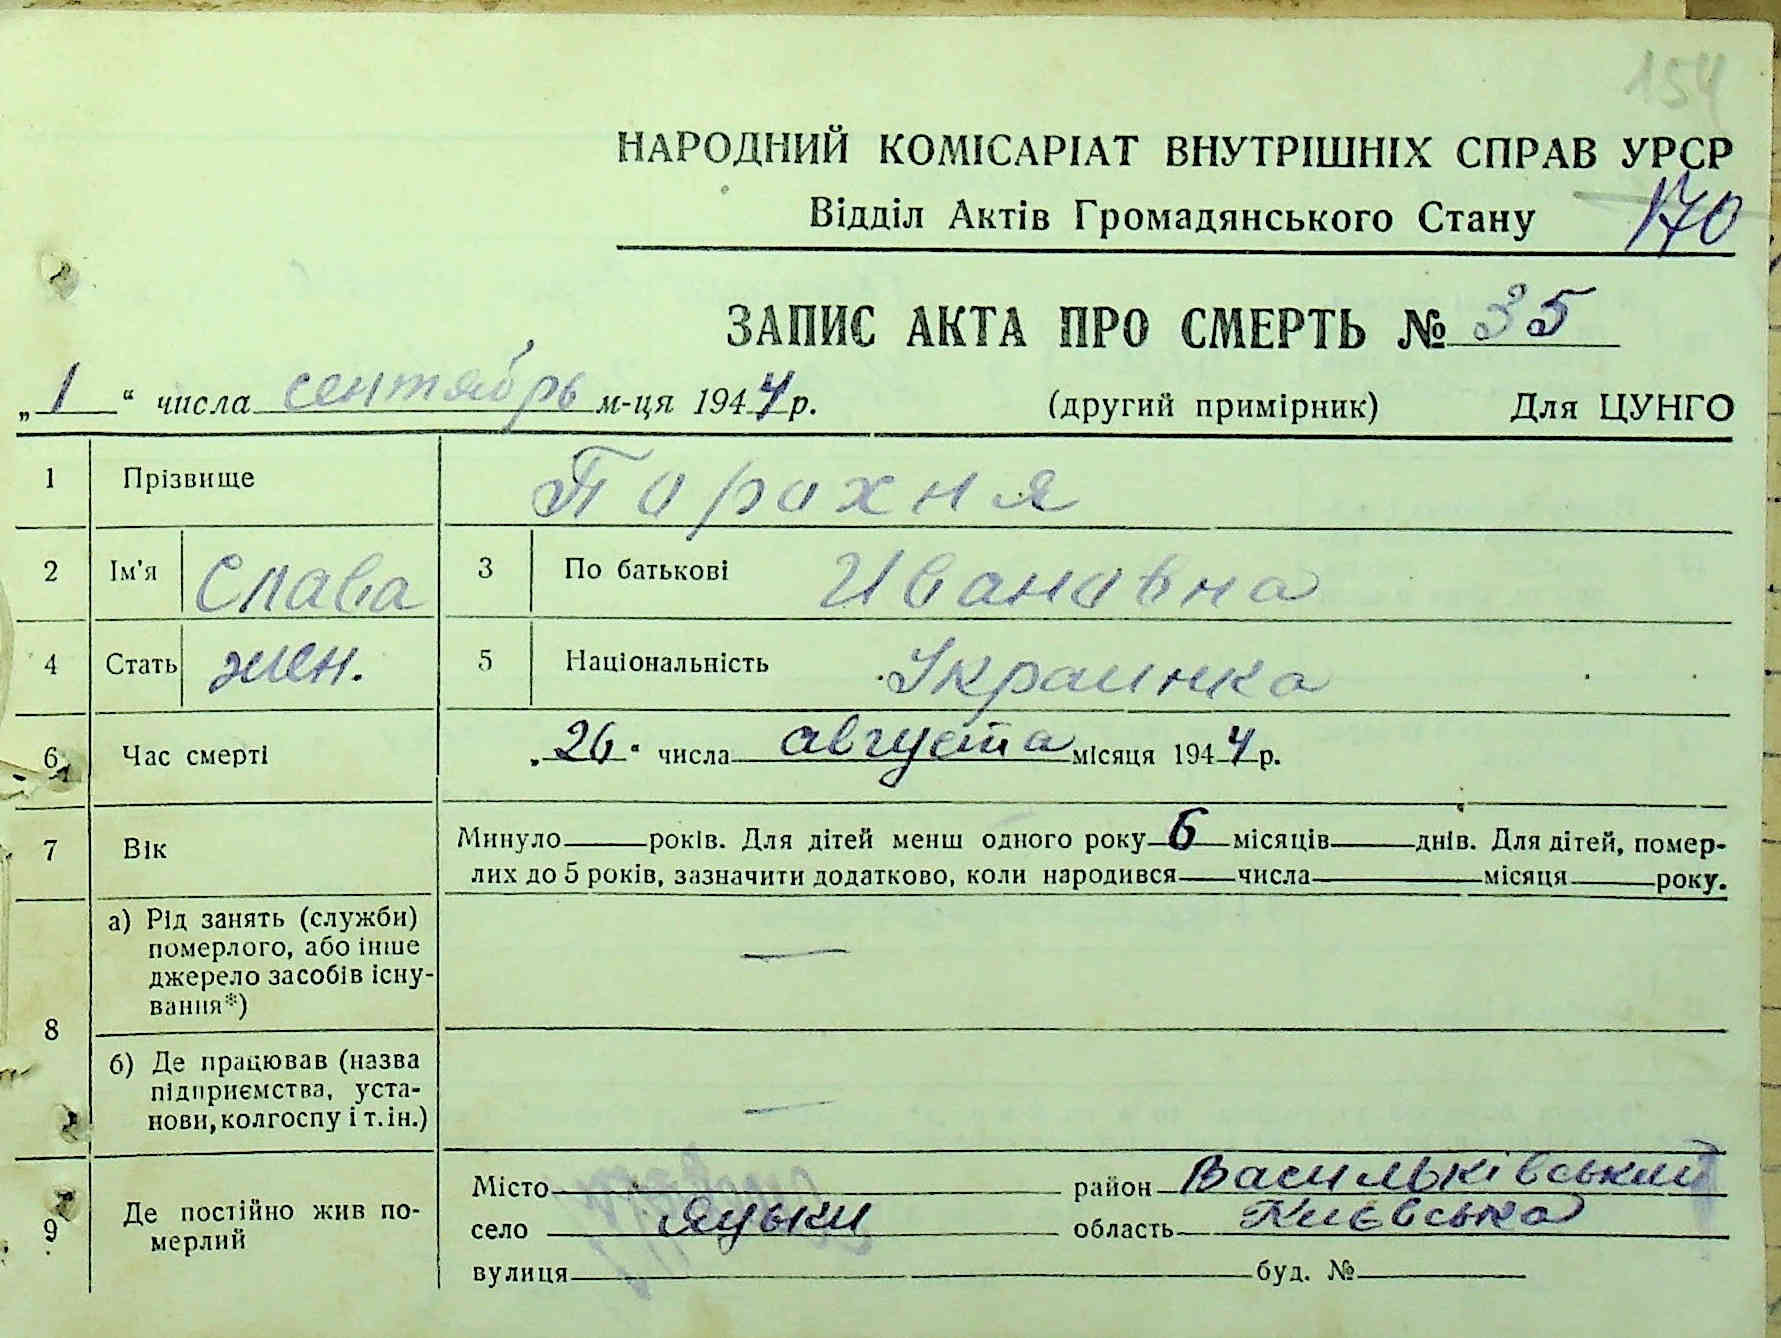 154
НАРОДНИЙ КОМІСАРІАТ ВНУТРІШНІХ СПРАВ УРСР
Відділ Актів Громадянського Стану 170
ЗАПИС АКТА ПРО СМЕРТЬ № 35
„ 1 “ числа сентябрь м-ця 1944 р. (другий примірник) Для ЦУНГО
1 Прізвище Парахня
2 Ім'я Слава 3 По батькові Ивановна
4 Стать жен. 5 Національність Украинка
6 Час смерті „ 26 “ числа августа місяця 1944 р.
7 Вік Минуло років. Для дітей менш одного року 6 місяців днів. Для дітей, помер-
лих до 5 років, зазначити додатково, коли народився числа місяця року.
8 а) Рід занять (служби)
померлого, або інше
джерело засобів існу-
вання*) —
б) Де працював (назва
підприємства, уста-
нови, колгоспу і т. ін.) —
9 Де постійно жив по-
мерлий
Місто район Васильківський
село Яцьки область Київська
вулиця буд. №